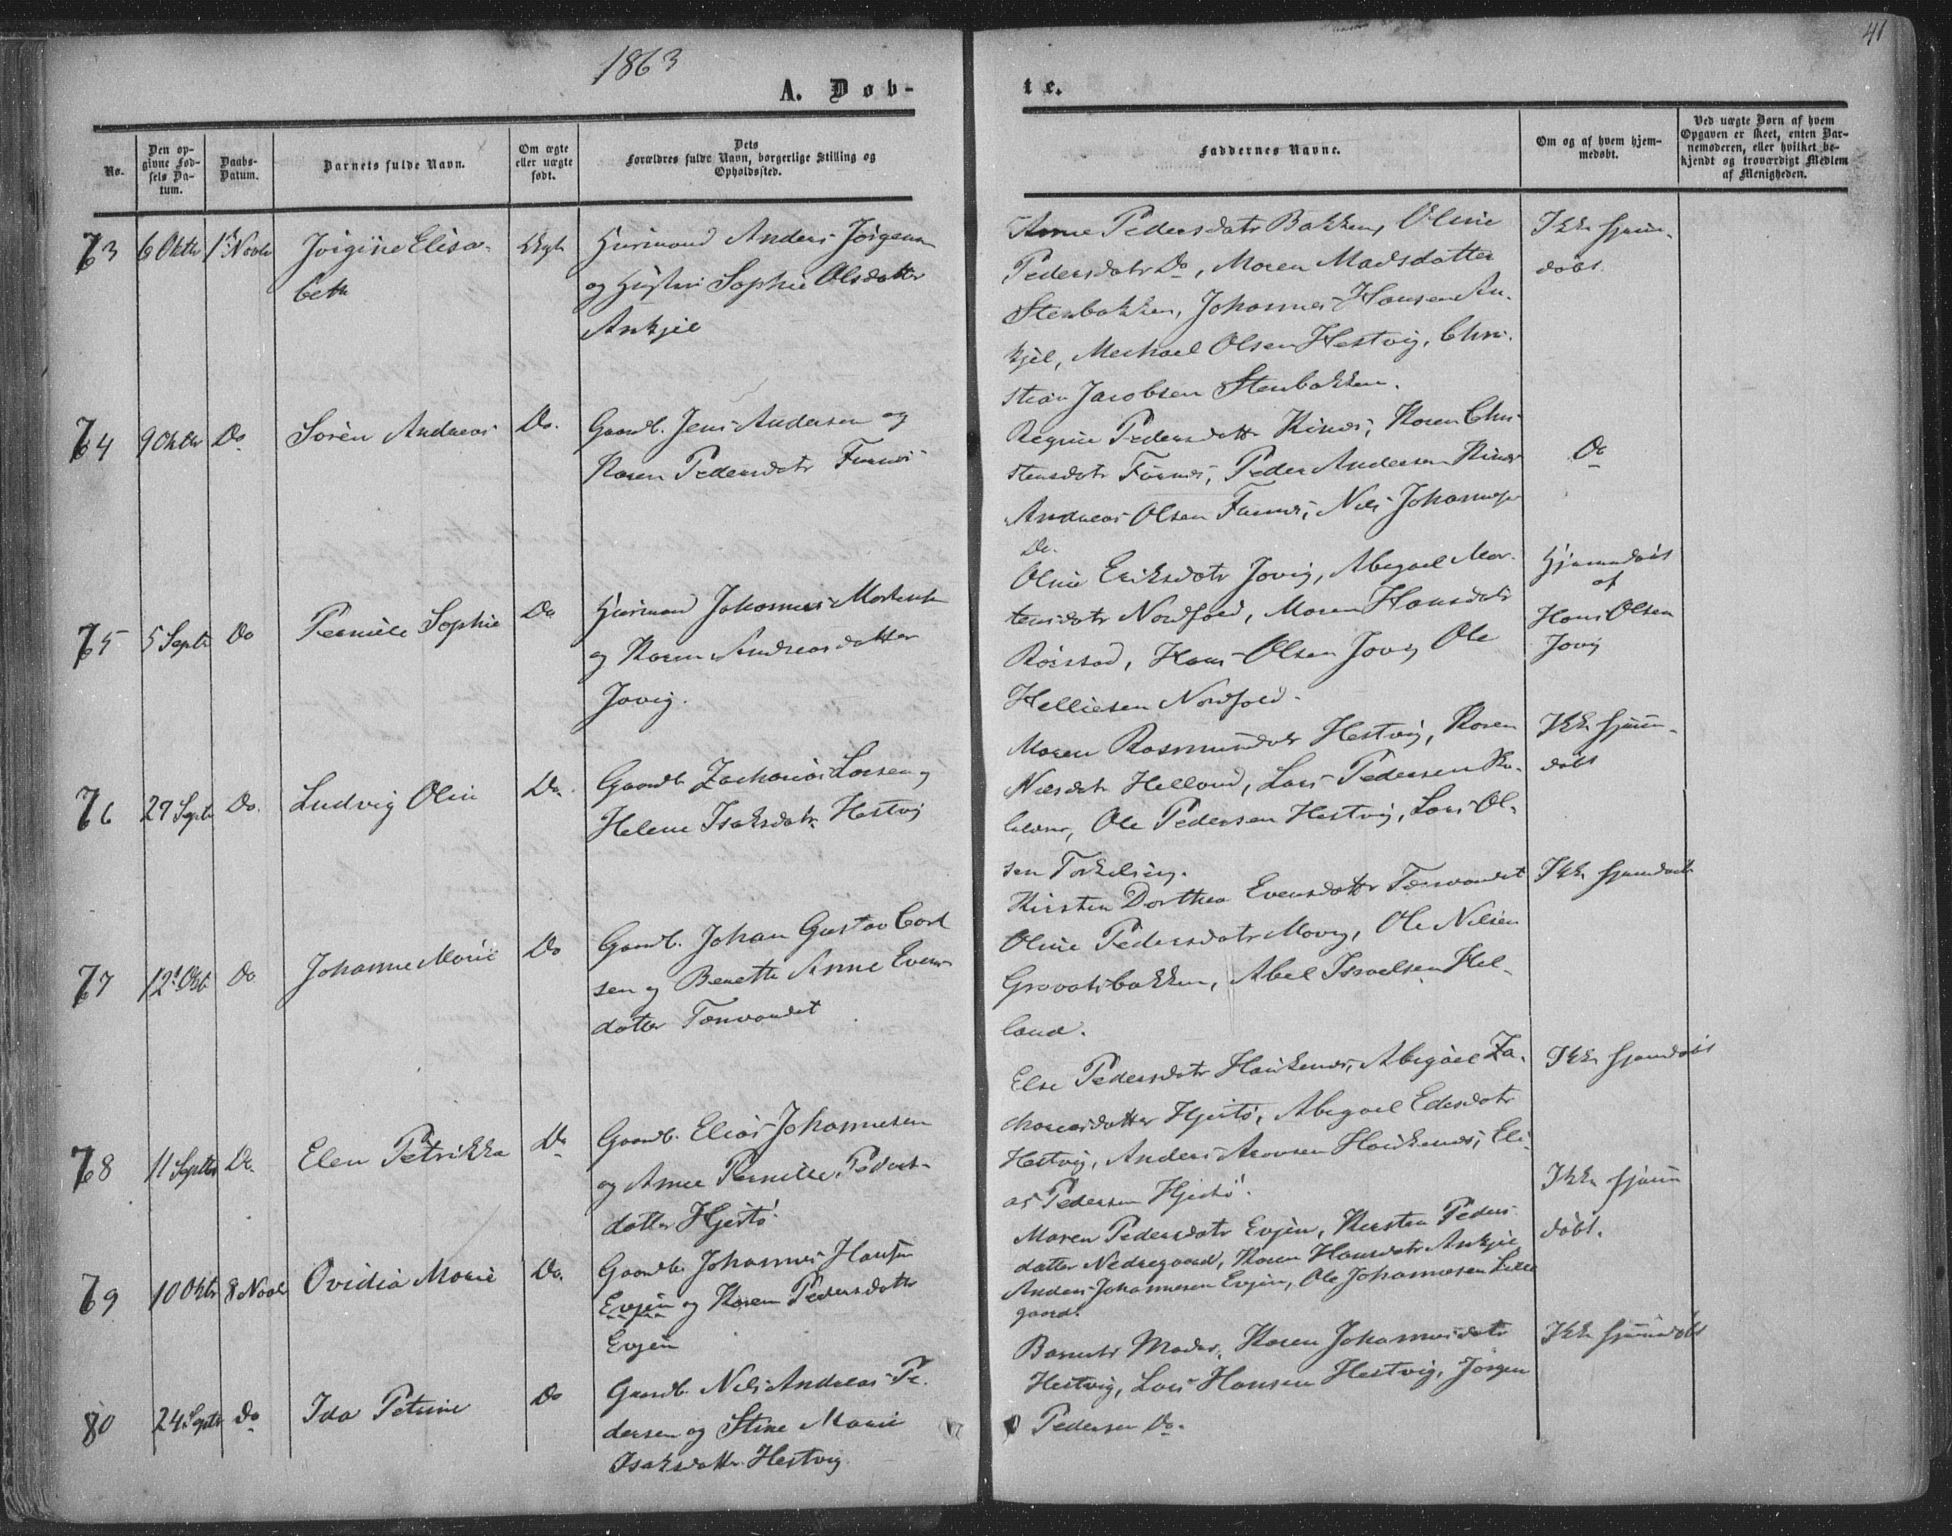 41
1863
A. Døb-
te.
No.
Den op-
givne Fød-
sels Da-
tum.
Daabs-
Datum.
Barnets fulde Navn.
Om ægte
eller uægte
født.
Dets
Forældres fulde Navn, borgerlige Stilling og
Opholdssted.
Faddernes Navne.
Om og af hvem hjem-
medøbt.
Ved uægte Børn af hvem
Opgaven er skeet, enten Bar-
nemoderen, eller hvilket be-
kjendt og troværdigt Medlem
af Menigheden.
73 6 Oktr 1ste Novbr Jørgine Elisa-
beth
Ægte
Huusmand Anders Jørgensen
og Hustru Sophie Olsdatter
Ankjel
Anne Pedersdatr Bakken, Oline
Pedersdatr Do, Maren Madsdatter
Stenbakken, Johannes Hansen An-
kjel, Mechael Olsen Hestvig, Chri-
stian Jacobsen Stenbakken.
Ikke hjem-
døbt.
74 9 Oktbr Do Søren Andreas Do.
Gaardb. Jens Andersen og
Karen Pedersdatr Furnæs
Regine Pedersdatter Kines, Karen Chri-
stensdatr Furnæs, Peder Andersen Kines
Andreas Olsen Furnæs, Nils Johannesen
Do.
Do
75 5 Septr Do Pernille Sophie Do
Huusmand Johannes Mortensen
og Karen Andreasdatter
Jovig.
Oline Eriksdatr Jovig, Abegael Mor-
tensdatr Nordfold, Maren Hansdatr
Røssad, Hans Olsen Jovig Ole
Helliesen Nordfold.
Hjemmedøbt
af
Hans Olsen
Jovig
76 27 Septr Do. Ludvig Olai Do.
Gaardb. Zacharias Larsen og
Helene Isaksdatr Hestvig
Maren Rasmusdatr Hestvig, Karen
Nilsdatr Helland, Lars Pedersen Ka-
Ole Pedersen Hestvig, Lars Ol-
sen
Ikke hjem-
døbt
77 12te Okt. Do Johanne Marie Do
Gaardb. Johan Gustav Carl
sen og Benette Anne Evens-
datter Tennvandet
Kirsten Dorthea Evensdatter Tennvandet
Oline Pedersdatr Movig, Ole Nilsen
Gravatsbakken, Abel Israelsen Hel-
land.
Ikke hjemdøbt
78 11 Septbr Do. Elen Petrikka Do
Gaardb. Elias Johannesen
og Anne Pernille Peders-
datter Hjertø
Else Pedersdatr Haukenæs, Abegael Za-
chariasdatter Hjertø, Abegael Edisdatr
Hestvig, Anders Aronsen Haukenæs, Eli-
as Pedersen Hjertø.
Ikke hjemdøbt
79 10 Oktr 8 Novbr Ovidia Marie Do.
Gaardb. Johannes Hansen
Evjen og Karen Pedersdatter
Evjen
Maren Pedersdatr Evjen, Kirsten Peders-
datter Nedregaard, Karen Hansdatr Ankjel
Anders Johannesen Evjen, Ole Johannesen Lille
gaard.
Ikke hjem
døbt.
80 24 Septr Do Ida Petrine Do
Gaardb. Nils Andreas Pe-
dersen og Stine Marie
Isaksdatter Hestvig
Barnets Moder, Karen Johannesdatr
Hestvig, Lars Hansen Hestvig, Jørgen
Pedersen Do.
Ikke hjemmedøbt